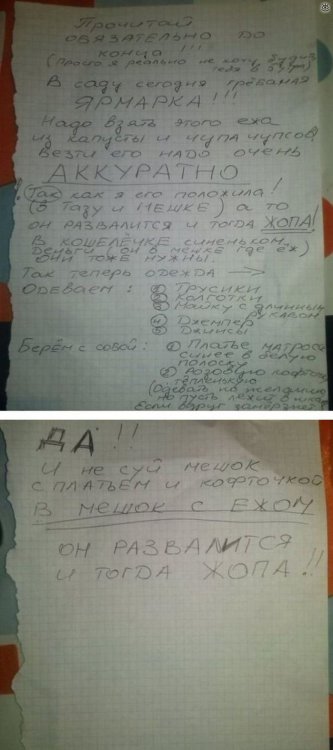 Прочитай
обязательно до
конца !!!
(Просто я реально не хочу будить
тебя в 5 утра)
В саду сегодня грёбаная
ЯРМАРКА!!!
Надо взять этого ежа
из капусты и чупа чупсов,
везти его надо очень
АККУРАТНО
! (Так) как я его положила!
(в тазу и мешке) а то
он развалится и тогда ЖОПА!
В кошелёчке синеньком
деньги (он в мешке где ёж)
они тоже нужны.
Так теперь одежда →
Одеваем: ① Трусики
② Колготки
③ Майку с длинным
рукавом
④ Джемпер
⑤ Джинсы
Берём с собой: ① Платье матроса
синее в белую
полоску
② Розовую кофточку
тёпленькую
(Одевать не желательно
но пусть лежит в шкафу
Если вдруг замёрзнет
ДА!!
И не суй мешок
с платьем и кофточкой
В МЕШОК С ЕЖОМ
ОН РАЗВАЛИТСЯ
И ТОГДА ЖОПА!!